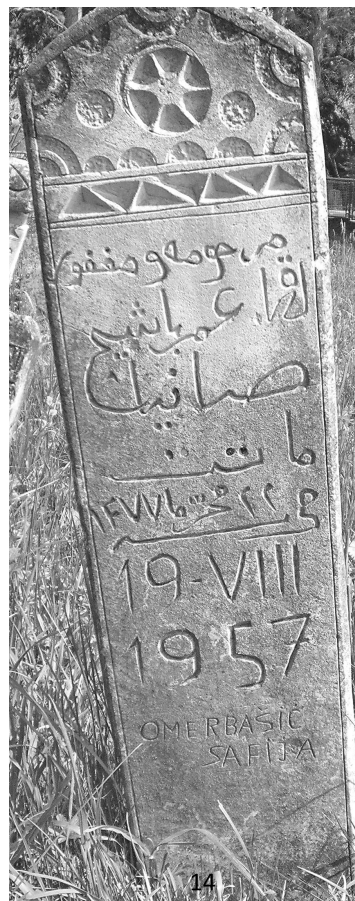 مرحومه و مغفور
لها عمرباشيچ
ماتت
في ٢٢ محرم ١٣٧٧
19-VIII
1957
OMERBAŠIĆ
SAFIJA
14